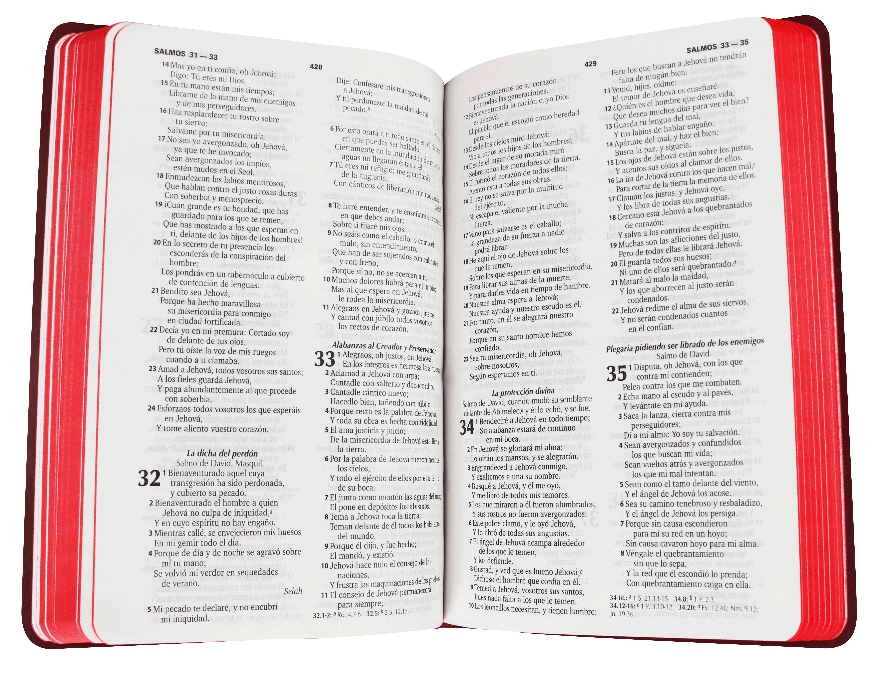 SALMOS 31—33
428
14 Mas yo en ti confío, oh Jehová;
Digo: Tú eres mi Dios.
15 En tu mano están mis tiempos;
Líbrame de la mano de mis enemigos
y de mis perseguidores.
16 Haz resplandecer tu rostro sobre
tu siervo;
Sálvame por tu misericordia.
17 No sea yo avergonzado, oh Jehová,
ya que te he invocado;
Sean avergonzados los impíos,
estén mudos en el Seol.
18 Enmudezcan los labios mentirosos,
Que hablan contra el justo cosas duras
Con soberbia y menosprecio.
19 ¡Cuán grande es tu bondad, que has
guardado para los que te temen,
Que has mostrado a los que esperan en
ti, delante de los hijos de los hombres!
20 En lo secreto de tu presencia los
esconderás de la conspiración del
hombre;
Los pondrás en un tabernáculo a cubierto
de contención de lenguas.
21 Bendito sea Jehová,
Porque ha hecho maravillosa
su misericordia para conmigo
en ciudad fortificada.
22 Decía yo en mi premura: Cortado soy
de delante de tus ojos;
Pero tú oíste la voz de mis ruegos
cuando a ti clamaba.
23 Amad a Jehová, todos vosotros sus santos;
A los fieles guarda Jehová,
Y paga abundantemente al que procede
con soberbia.
24 Esforzaos todos vosotros los que esperáis
en Jehová,
Y tome aliento vuestro corazón.
La dicha del perdón
Salmo de David. Masquil.
32 1 Bienaventurado aquel cuya
transgresión ha sido perdonada,
y cubierto su pecado.
2 Bienaventurado el hombre a quien
Jehová no culpa de iniquidad,
Y en cuyo espíritu no hay engaño.
3 Mientras callé, se envejecieron mis huesos
En mi gemir todo el día.
4 Porque de día y de noche se agravó sobre
mí tu mano;
Se volvió mi verdor en sequedades
de verano.
Selah
5 Mi pecado te declaré, y no encubrí
mi iniquidad.
Dije: Confesaré mis transgresiones
a Jehová;
Y tú perdonaste la maldad de mi
pecado.
6 Por esto orará a ti todo santo
en que puedas ser hallado;
Ciertamente en la inundación de
aguas no llegarán éstas a él.
7 Tú eres mi refugio; me guardarás
de la angustia;
Con cánticos de liberación
8 Te haré entender, y te enseñaré
en que debes andar;
Sobre ti fijaré mis ojos.
9 No seáis como el caballo, o como el
mulo, sin entendimiento,
Que han de ser sujetados con cabestro
y con freno,
Porque si no, no se acercan a ti.
10 Muchos dolores habrá para el impío;
Mas al que espera en Jehová,
le rodea la misericordia.
11 Alegraos en Jehová y gozaos, justos;
Y cantad con júbilo todos vosotros
los rectos de corazón.
Alabanzas al Creador y Preservador
33 1 Alegraos, oh justos, en Jehová;
En los íntegros es hermosa la
2 Aclamad a Jehová con arpa;
Cantadle con salterio y decacordio.
3 Cantadle cántico nuevo;
Hacedlo bien, tañendo con júbilo.
4 Porque recta es la palabra de Jehová,
Y toda su obra es hecha con fidelidad.
5 El ama justicia y juicio;
De la misericordia de Jehová está llena
la tierra.
6 Por la palabra de Jehová fueron hechos
los cielos,
Y todo el ejército de ellos por el aliento
de su boca.
7 El junta como montón las aguas del mar;
El pone en depósitos los abismos.
8 Tema a Jehová toda la tierra;
Teman delante de él todos los habitantes
del mundo.
9 Porque él dijo, y fue hecho;
El mandó, y existió.
10 Jehová hace nulo el consejo de las
naciones,
Y frustra las maquinaciones de los pueblos.
11 El consejo de Jehová permanecerá
para siempre;
32.1-2: Ro. 4.7-8. 32.5: 2 S. 12.13.
429
SALMOS 33—35
Los pensamientos de su corazón
por todas las generaciones.
12 Bienaventurada la nación cuyo Dios
es Jehová,
El pueblo que él escogió como heredad
para sí.
13 Desde los cielos miró Jehová;
Vio a todos los hijos de los hombres;
14 Desde el lugar de su morada miró
Sobre todos los moradores de la tierra.
15 El formó el corazón de todos ellos;
Atento está a todas sus obras.
16 El rey no se salva por la multitud
del ejército,
Ni escapa el valiente por la mucha
fuerza.
17 Vano para salvarse es el caballo;
La grandeza de su fuerza a nadie
podrá librar.
18 He aquí el ojo de Jehová sobre los
que le temen,
Sobre los que esperan en su misericordia,
19 Para librar sus almas de la muerte,
Y para darles vida en tiempo de hambre.
20 Nuestra alma espera a Jehová;
Nuestra ayuda y nuestro escudo es él.
21 Por tanto, en él se alegrará nuestro
corazón,
Porque en su santo nombre hemos
confiado.
22 Sea tu misericordia, oh Jehová,
sobre nosotros,
Según esperamos en ti.
La protección divina
Salmo de David, cuando mudó su semblante
delante de Abimelec, y él lo echó, y se fue.
34 1 Bendeciré a Jehová en todo tiempo;
Su alabanza estará de continuo
en mi boca.
2 En Jehová se gloriará mi alma;
Lo oirán los mansos, y se alegrarán.
3 Engrandeced a Jehová conmigo,
Y exaltemos a una su nombre.
4 Busqué a Jehová, y él me oyó,
Y me libró de todos mis temores.
5 Los que miraron a él fueron alumbrados,
Y sus rostros no fueron avergonzados.
6 Este pobre clamó, y le oyó Jehová,
Y lo libró de todas sus angustias.
7 El ángel de Jehová acampa alrededor
de los que le temen,
Y los defiende.
8 Gustad, y ved que es bueno Jehová;
Dichoso el hombre que confía en él.
9 Temed a Jehová, vosotros sus santos,
Pues nada falta a los que le temen.
10 Los leoncillos necesitan, y tienen hambre;
Pero los que buscan a Jehová no tendrán
falta de ningún bien.
11 Venid, hijos, oídme;
El temor de Jehová os enseñaré.
12 ¿Quién es el hombre que desea vida,
Que desea muchos días para ver el bien?
13 Guarda tu lengua del mal,
Y tus labios de hablar engaño.
14 Apártate del mal, y haz el bien;
Busca la paz, y síguela.
15 Los ojos de Jehová están sobre los justos,
Y atentos sus oídos al clamor de ellos.
16 La ira de Jehová contra los que hacen mal,
Para cortar de la tierra la memoria de ellos.
17 Claman los justos, y Jehová oye,
Y los libra de todas sus angustias.
18 Cercano está Jehová a los quebrantados
de corazón;
Y salva a los contritos de espíritu.
19 Muchas son las aflicciones del justo,
Pero de todas ellas le librará Jehová.
20 El guarda todos sus huesos;
Ni uno de ellos será quebrantado.
21 Matará al malo la maldad,
Y los que aborrecen al justo serán
condenados.
22 Jehová redime el alma de sus siervos,
Y no serán condenados cuantos
en él confían.
Plegaria pidiendo ser librado de los enemigos
Salmo de David.
35 1 Disputa, oh Jehová, con los que
contra mí contienden;
Pelea contra los que me combaten.
2 Echa mano al escudo y al pavés,
Y levántate en mi ayuda.
3 Saca la lanza, cierra contra mis
perseguidores;
Di a mi alma: Yo soy tu salvación.
4 Sean avergonzados y confundidos
los que buscan mi vida;
Sean vueltos atrás y avergonzados
los que mi mal intentan.
5 Sean como el tamo delante del viento,
Y el ángel de Jehová los acose.
6 Sea su camino tenebroso y resbaladizo,
Y el ángel de Jehová los persiga.
7 Porque sin causa escondieron
para mí su red en un hoyo;
Sin causa cavaron hoyo para mi alma.
8 Véngale el quebrantamiento
sin que lo sepa,
Y la red que él escondió lo prenda;
Con quebrantamiento caiga en ella.
34 tít.: 1 S. 21.13-15. 34.8: 1 P. 2.3.
34.12-16: 1 P. 3.10-12. 34.20: Ex. 12.46; Nm. 9.12;
Jn. 19.36.